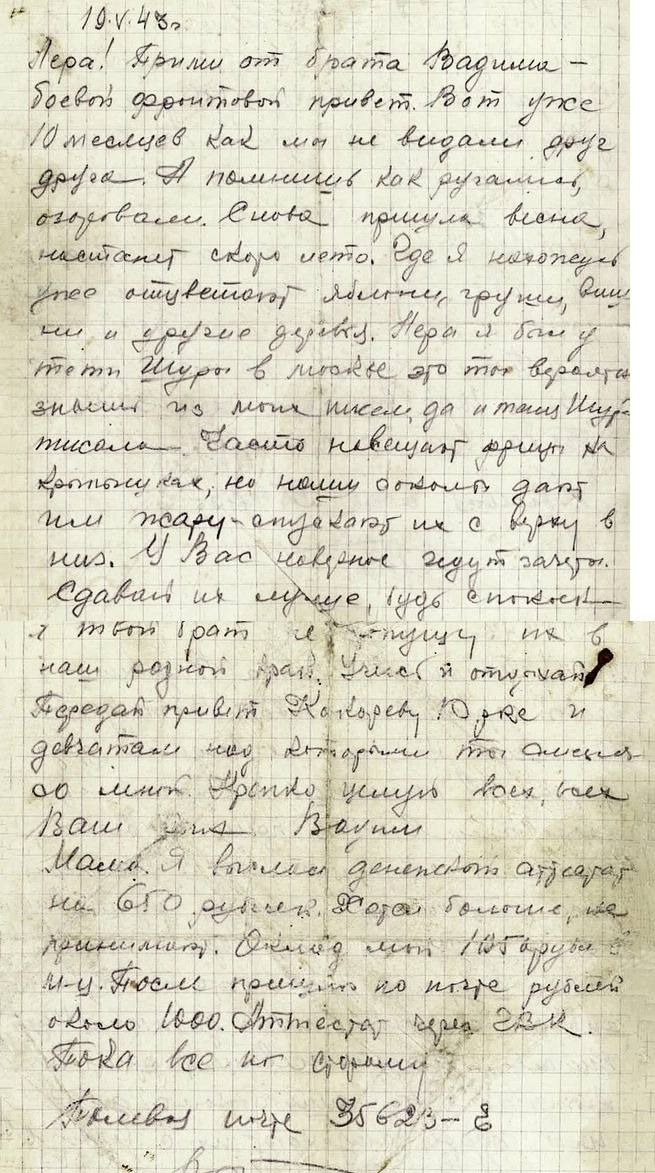 19.V.43г
Лера! Прими от брата Вадима –
боевой фронтовой привет. Вот уже
10 месяцев как мы не видали друг
друга. А помнишь как ругались,
озоровали. Снова пришла весна,
настанет скоро лето. Где я нахожусь
уже отцветают яблони, груши, виш
ни и другие деревья. Лера я был у
тети Шуры в москве это ты вероятно
знаешь из моих писем, да и тетя Шура
писала. Часто навещают фрицы на
но наши соколы дают
им жару – спускают их с верху в
низ. У Вас наверное идут зачеты.
Сдавай их лучше, будь спокой
я твой брат не пущу их в
наш родной край. Учись и отдыхай!
Передай привет Кокореву Юрке и
девчатам над которыми ты смеялся
со мной. Крепко целую всех, всех
Ваш Вадим
Мама. Я выслал денежный аттестат
на 650 рублей. Хотел больше, не
принимают. Оклад мой рубл в
м-ц. После пришлю по почте рублей
около 1000. Аттестат через ГВК.
Пока все по старому
Полевая почта 35623–Е